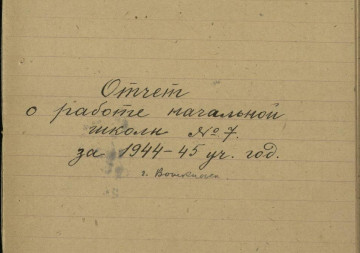 Отчет
о работе начальной
школы № 7.
за 1944-45 уч. год.
г.